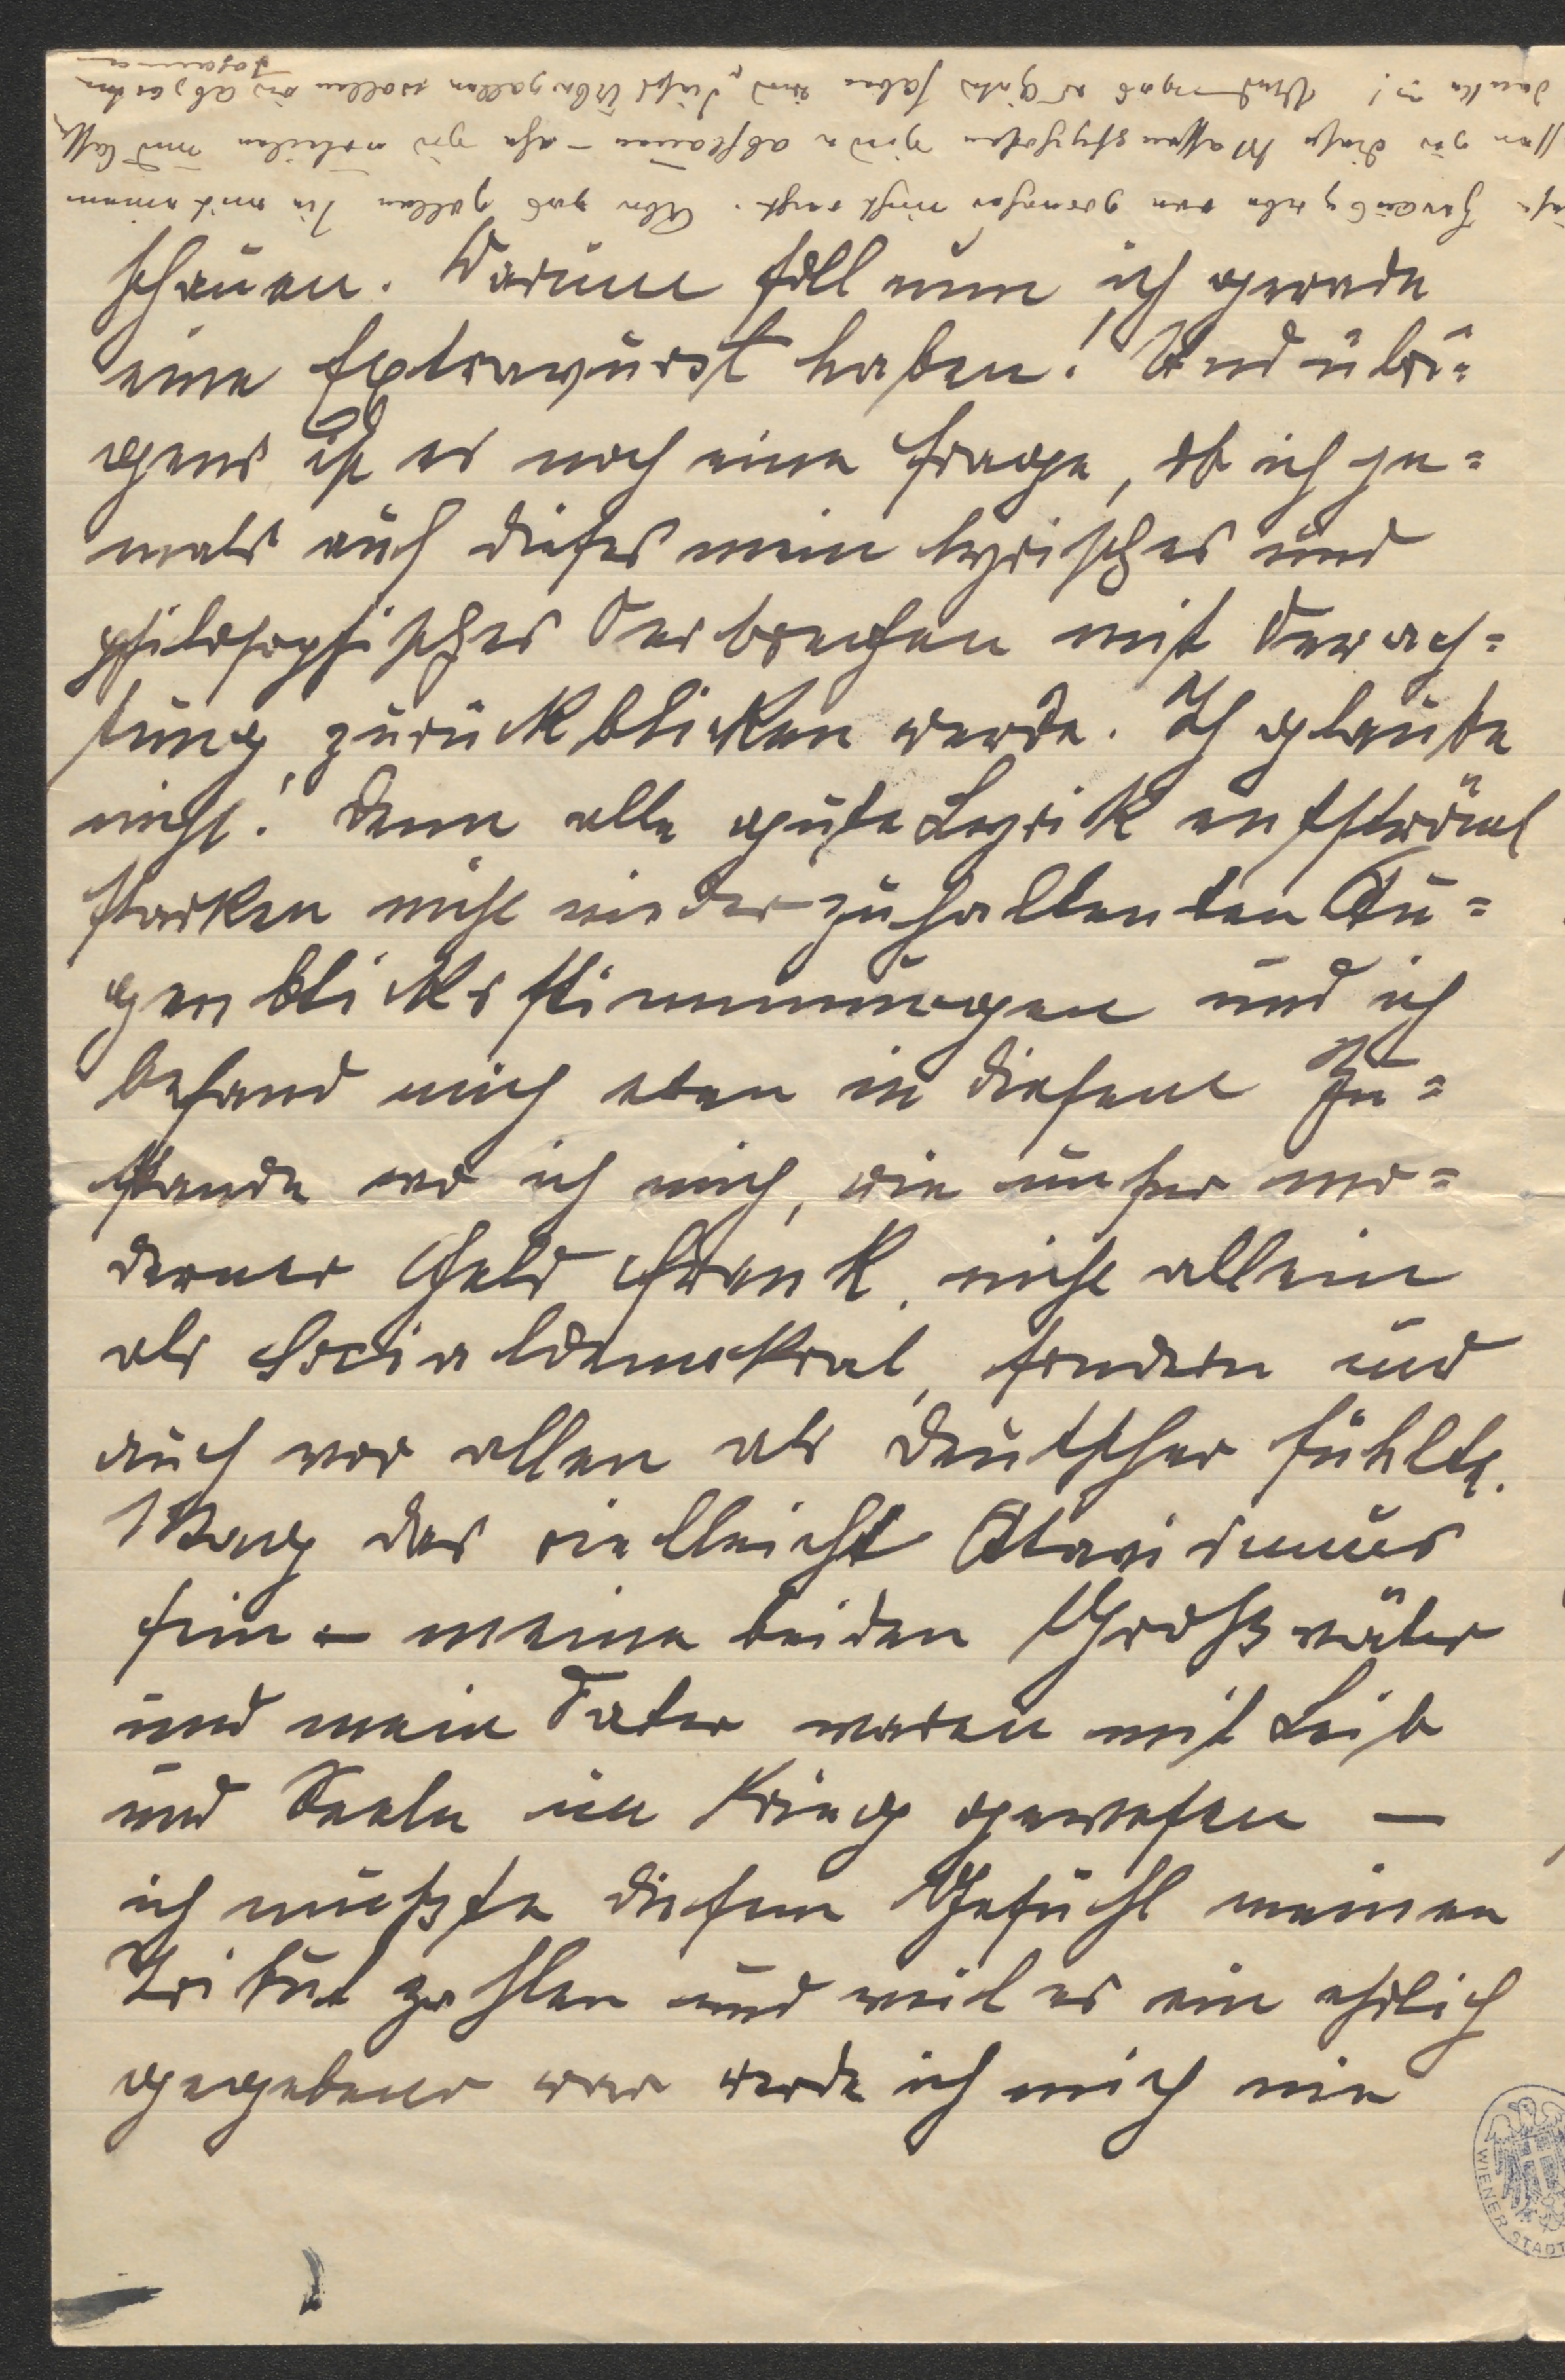 schauen. Warum soll nun ich gerade
eine Extrawurst haben! Und übri=
gens ist es noch eine Frage, ob ich je=
mals auf dieses mein lyrisches und
philosophisches Verbrechen mit Verach=
tung zurückblicken werde. Ich glaube
nicht! Denn alle gute Lyrik entströmt
starken nicht niederzuhaltenden Au=
genblicksstimmungen und ich
befand mich eben in diesem Zu=
stande wo ich mich, wie unser mo=
derner Held Frank, nicht allein
als Socialdemokrat, sondern und
auch vor allen als Deutscher fühlte.
Mag das vielleicht Atavismus
sein – meine beiden Großväter
und mein Vater waren mit Leib
und Seele im Krieg gewesen –
ich mußte diesem Gefühl meinen
Tribut zahlen und weil es ein ehrlich
gegebener war werde ich mich nie
WIENER STADT